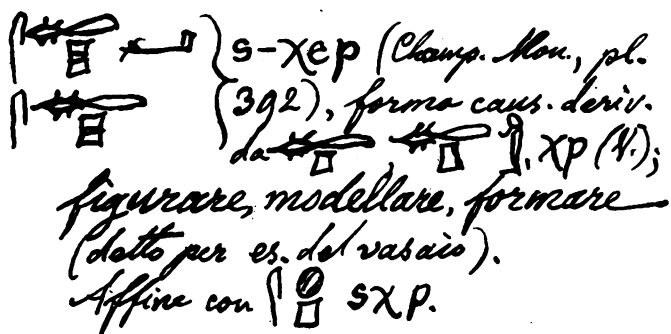 s-χep (Champ. Mon., pl.
392), forma caus. deriv.
da χp (V.);
figurare, modellare, formare
(detto per es. del vasaio).
Affine con sχp.